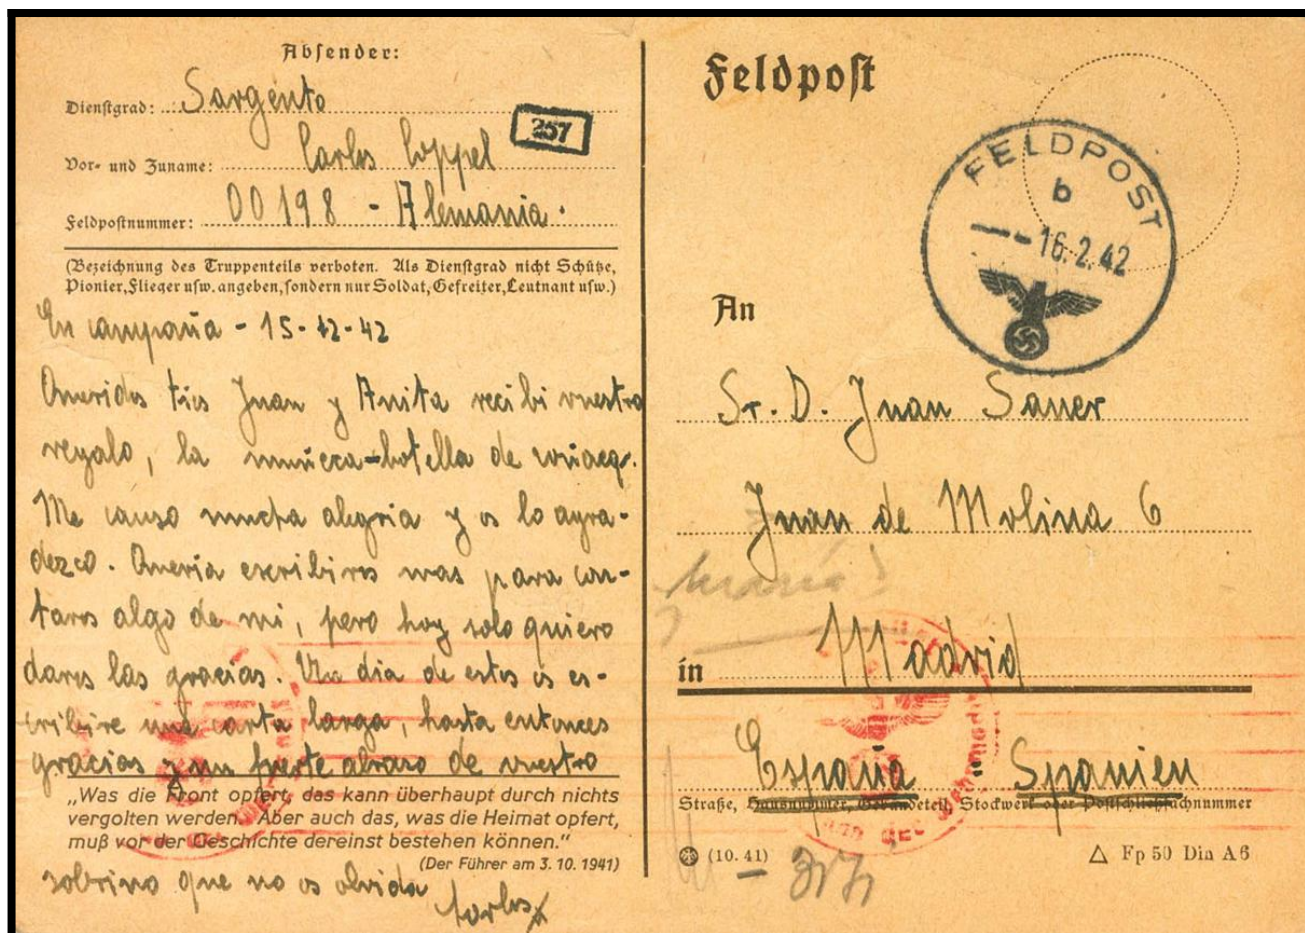 Absender:
Dienstgrad: Sargento
257
Vor- und Zuname: Carlos Coppel
Feldpostnummer: 00198 - Alemania.
(Bezeichnung des Truppenteils verboten. Als Dienstgrad nicht Schütze,
Pionier, Flieger usw. angeben, sondern nur Soldat, Gefreiter, Leutnant usw.)
En campaña - 15-12-42
Queridos tios Juan y Anita recibi vuestro
regalo, la muñeca-botella de
Me causo mucha alegria y os lo agra-
dezco. Queria escribiros mas para con-
taros algo de mi, pero hoy solo quiero
daros las gracias. Un dia de estos os es-
cribire una carta larga, hasta entonces
gracias y un fuerte abrazo de vuestro
„Was die Front opfert, das kann überhaupt durch nichts
vergolten werden. Aber auch das, was die Heimat opfert,
muß vor der Geschichte dereinst bestehen können.“
(Der Führer am 3. 10. 1941)
sobrino que no os olvida
Carlos
Feldpost
FELDPOST
b
16.2.42
An
Sr. D. Juan Sauer
Juan de Molina 6
in Madrid
España Spanien
Straße, Hausnummer, Gebäudeteil, Stockwerk oder Postschließfachnummer
(10. 41)
△ Fp 50 Din A6